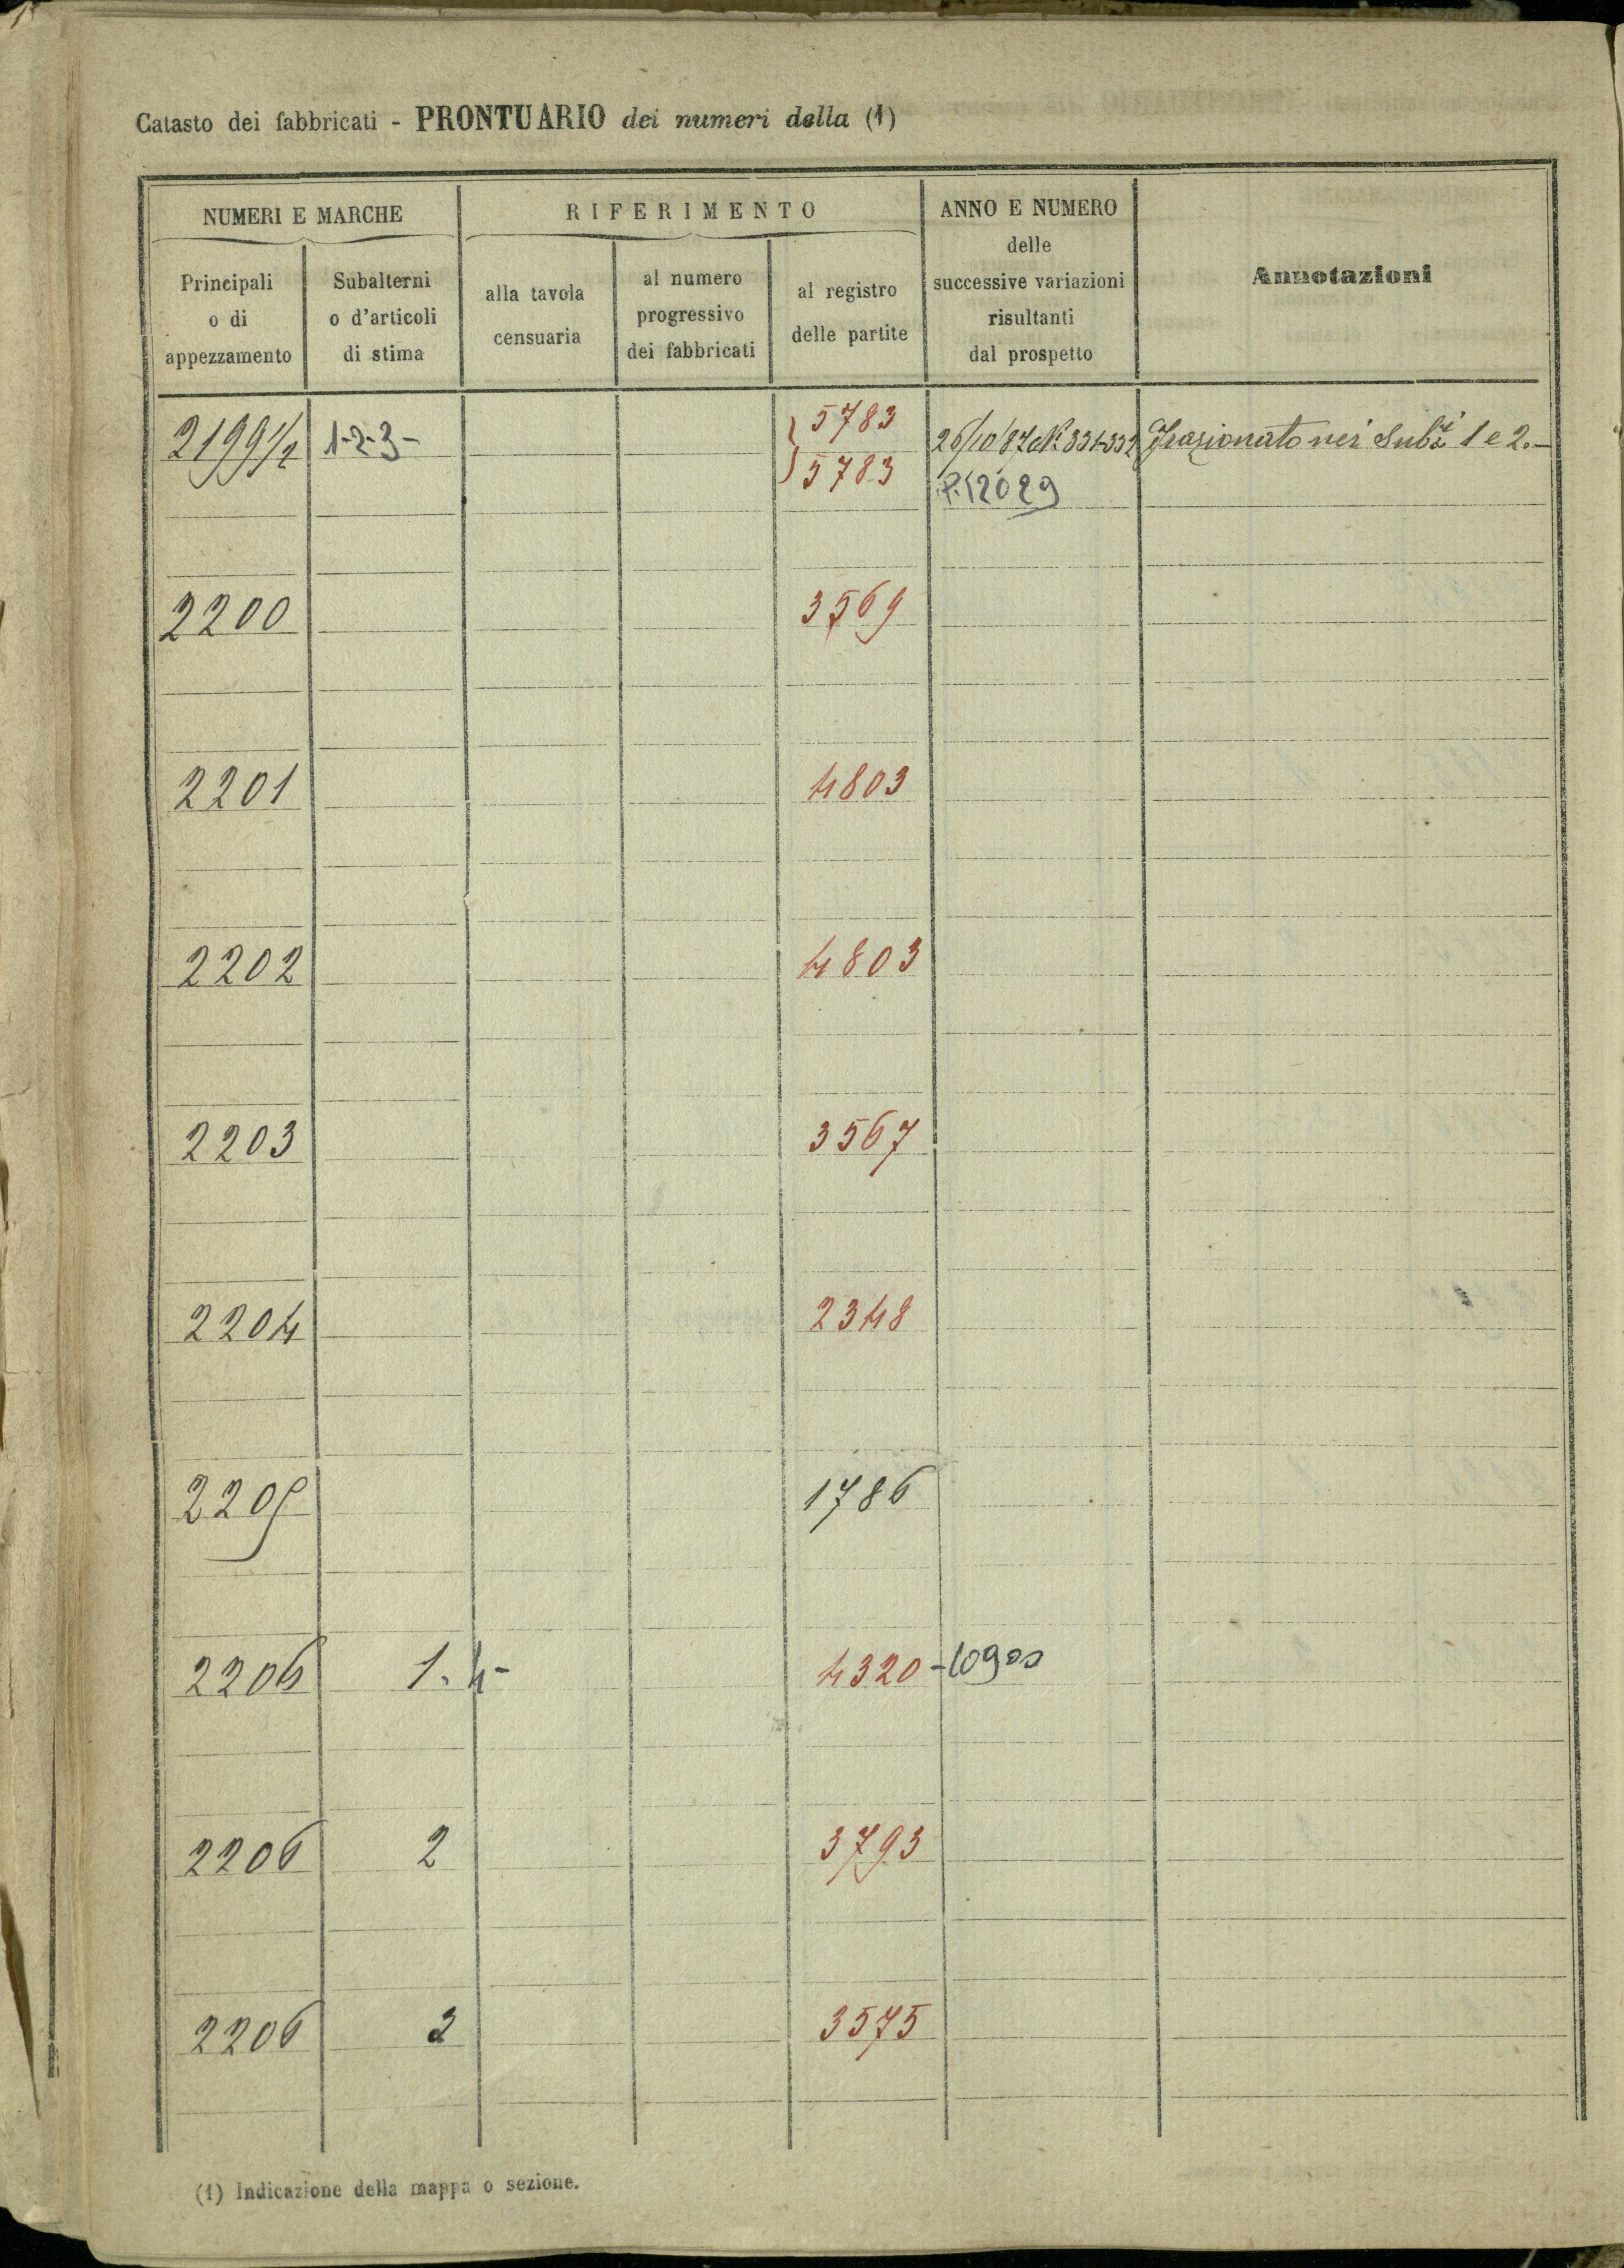 Catasto dei fabbricati - PRONTUARIO dei numeri della (1)
NUMERI E MARCHE
RIFERIMENTO
ANNO E NUMERO
delle
successive variazioni
risultanti
dal prospetto
Annotazioni
Principali
o di
appezzamento
Subalterni
o d'articoli
di stima
alla tavola
censuaria
al numero
progressivo
dei fabbricati
al registro
delle partite
2199 1/2 1-2-3- 5783 26/10/87 N. 331-332 Frazionato nei Sub.i 1 e 2.-
5783 P. 12029
2200 3569
2201 4803
2202 4803
2203 3567
2204 2348
2205 1786
2206 1. 4- 4320-
2206 2 3793
2206 3 3575
(1) Indicazione della mappa o sezione.